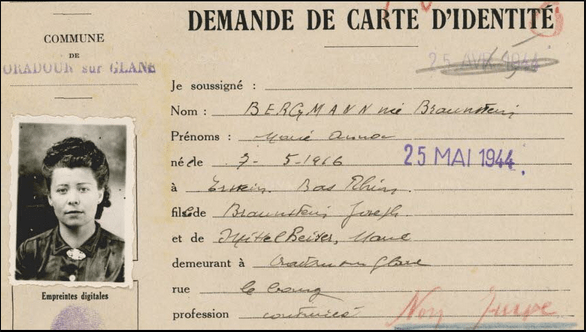 COMMUNE
DE
ORADOUR sur GLANE
Empreintes digitales
DEMANDE DE CARTE D'IDENTITÉ
25 AVR 1944
Je soussigné :
Nom : BERGMANN née Braunstein
Prénoms : Marie Anna
né e de 7-5-1916
25 MAI 1944
à Erstein Bas Rhin
fille de Braunstein Joseph
et de Mittel Marie
demeurant à Oradour sur Glane
rue le bourg
profession
Non Juive